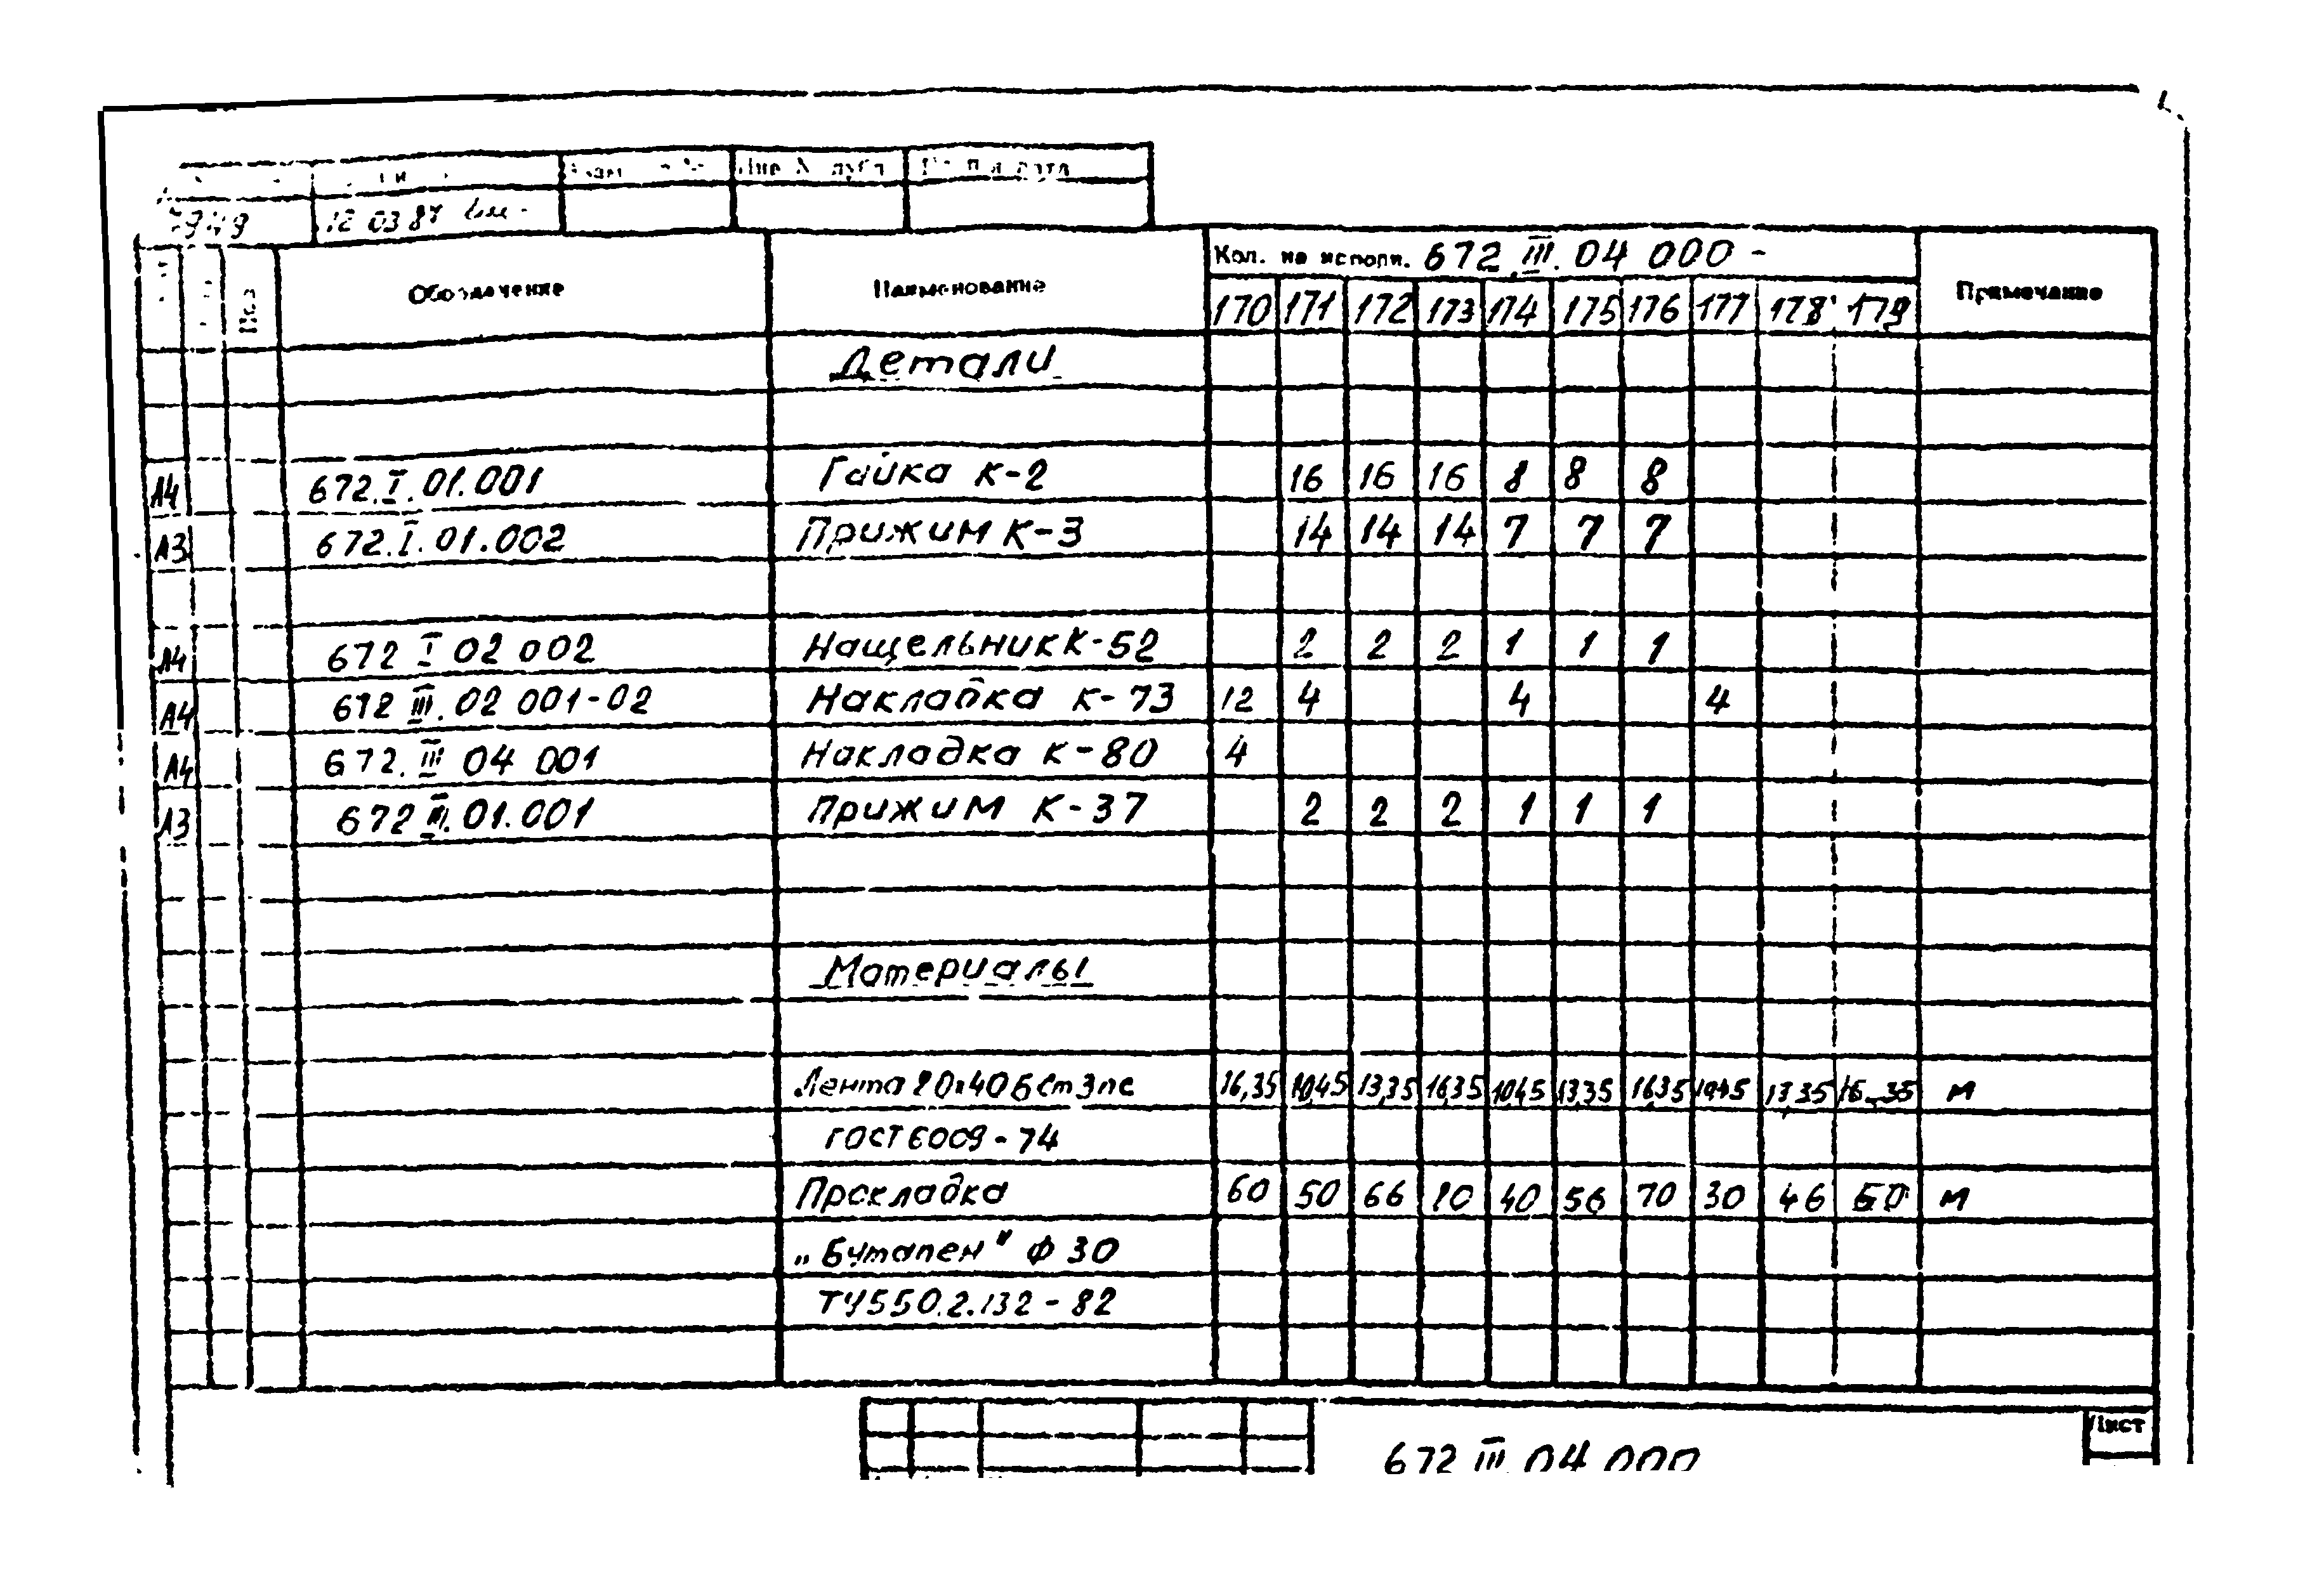 Инв N дубл
7949 12 03 87
Поз Обозначение Наименование Кол. на исполн. 672.III.04 000 - Примечание
170 171 172 173 174 175 176 177 178 179
Детали
А4 672.I.01.001 Гайка К-2 16 16 16 8 8 8
А3 672.I.01.002 Прижим К-3 14 14 14 7 7 7
А4 672 I 02 002 Нащельник К-52 2 2 2 1 1 1
А4 672 III.02 001-02 Накладка К-73 12 4 4 4
А4 672.III 04 001 Накладка К-80 4
А3 672 III.01.001 Прижим К-37 2 2 2 1 1 1
Материалы
Лента 20х40 БСт3пс 16,35 10,45 13,35 16,35 10,45 13,35 16,35 10,45 13,35 16,35 м
ГОСТ 6009-74
Прокладка 60 50 66 80 40 56 70 30 46 60 м
„Бутапен" Ф 30
ТУ550.2.132-82
672 III 04 000
Лист